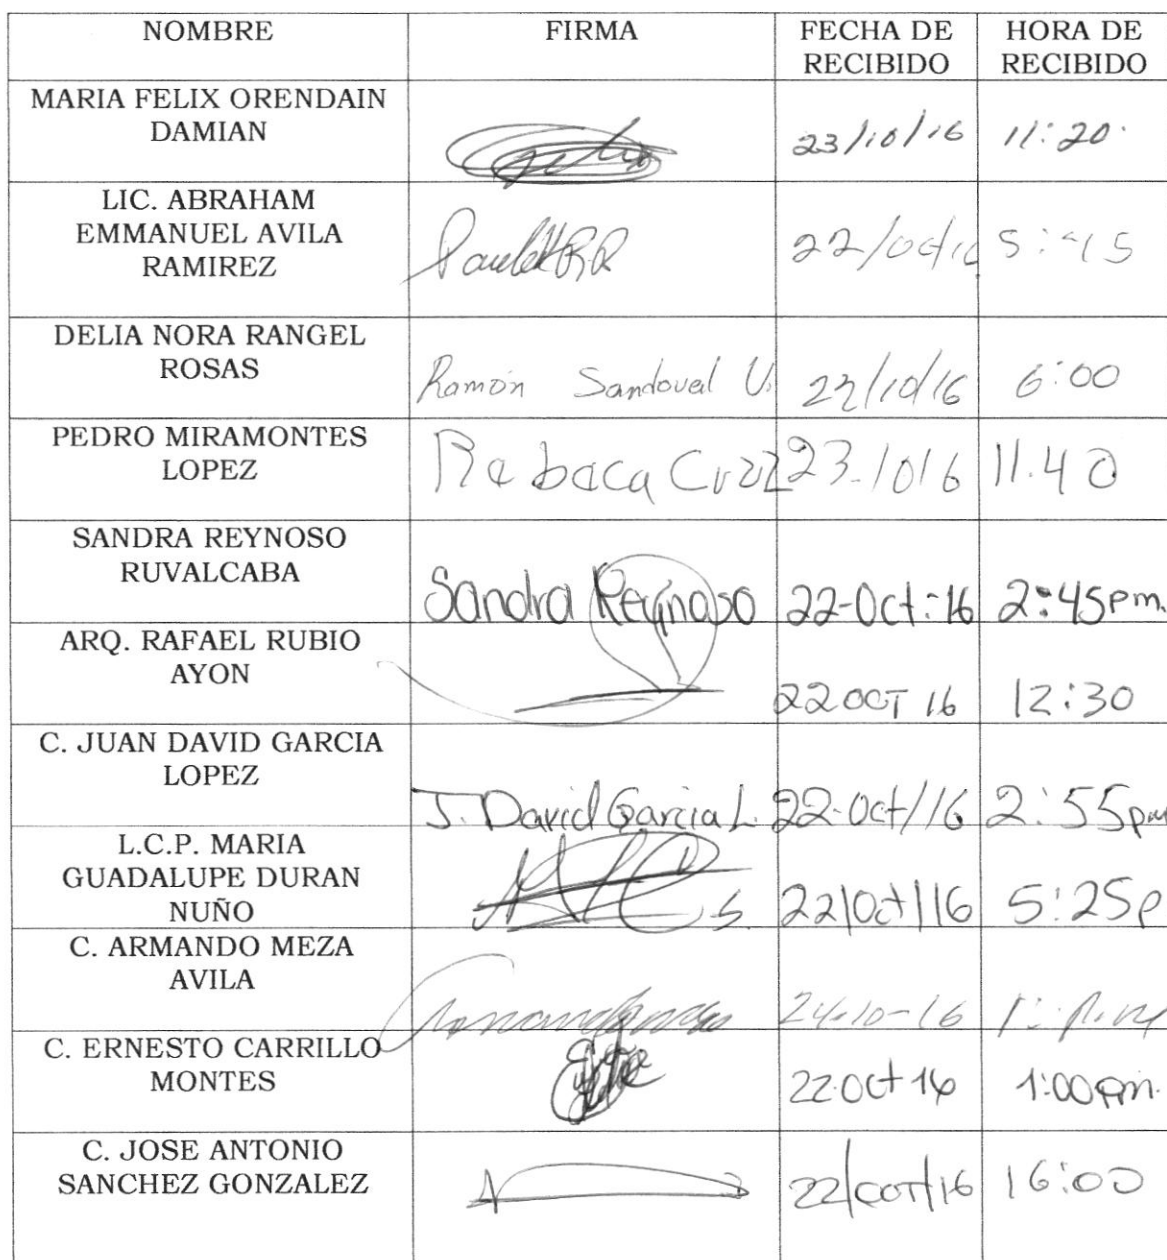 NOMBRE FIRMA FECHA DE RECIBIDO HORA DE RECIBIDO
MARIA FELIX ORENDAIN
DAMIAN 23/10/16 11:20
LIC. ABRAHAM
EMMANUEL AVILA
RAMIREZ 22/oct/16 5:45
DELIA NORA RANGEL
ROSAS Ramón Sandoval U. 22/10/16 6:00
PEDRO MIRAMONTES
LOPEZ Rebaca Cruz 23.1016 11.40
SANDRA REYNOSO
RUVALCABA Sandra Reynoso 22-Oct-16 2:45pm.
ARQ. RAFAEL RUBIO
AYON 22 OCT 16 12:30
C. JUAN DAVID GARCIA
LOPEZ J. David Garcia L. 22-Oct/16 2:55pm
L.C.P. MARIA
GUADALUPE DURAN
NUÑO 22/Oct/16 5:25p
C. ARMANDO MEZA
AVILA 24-10-16
C. ERNESTO CARRILLO
MONTES 22 Oct 16 1:00 pm.
C. JOSE ANTONIO
SANCHEZ GONZALEZ 22/OCT/16 16:00